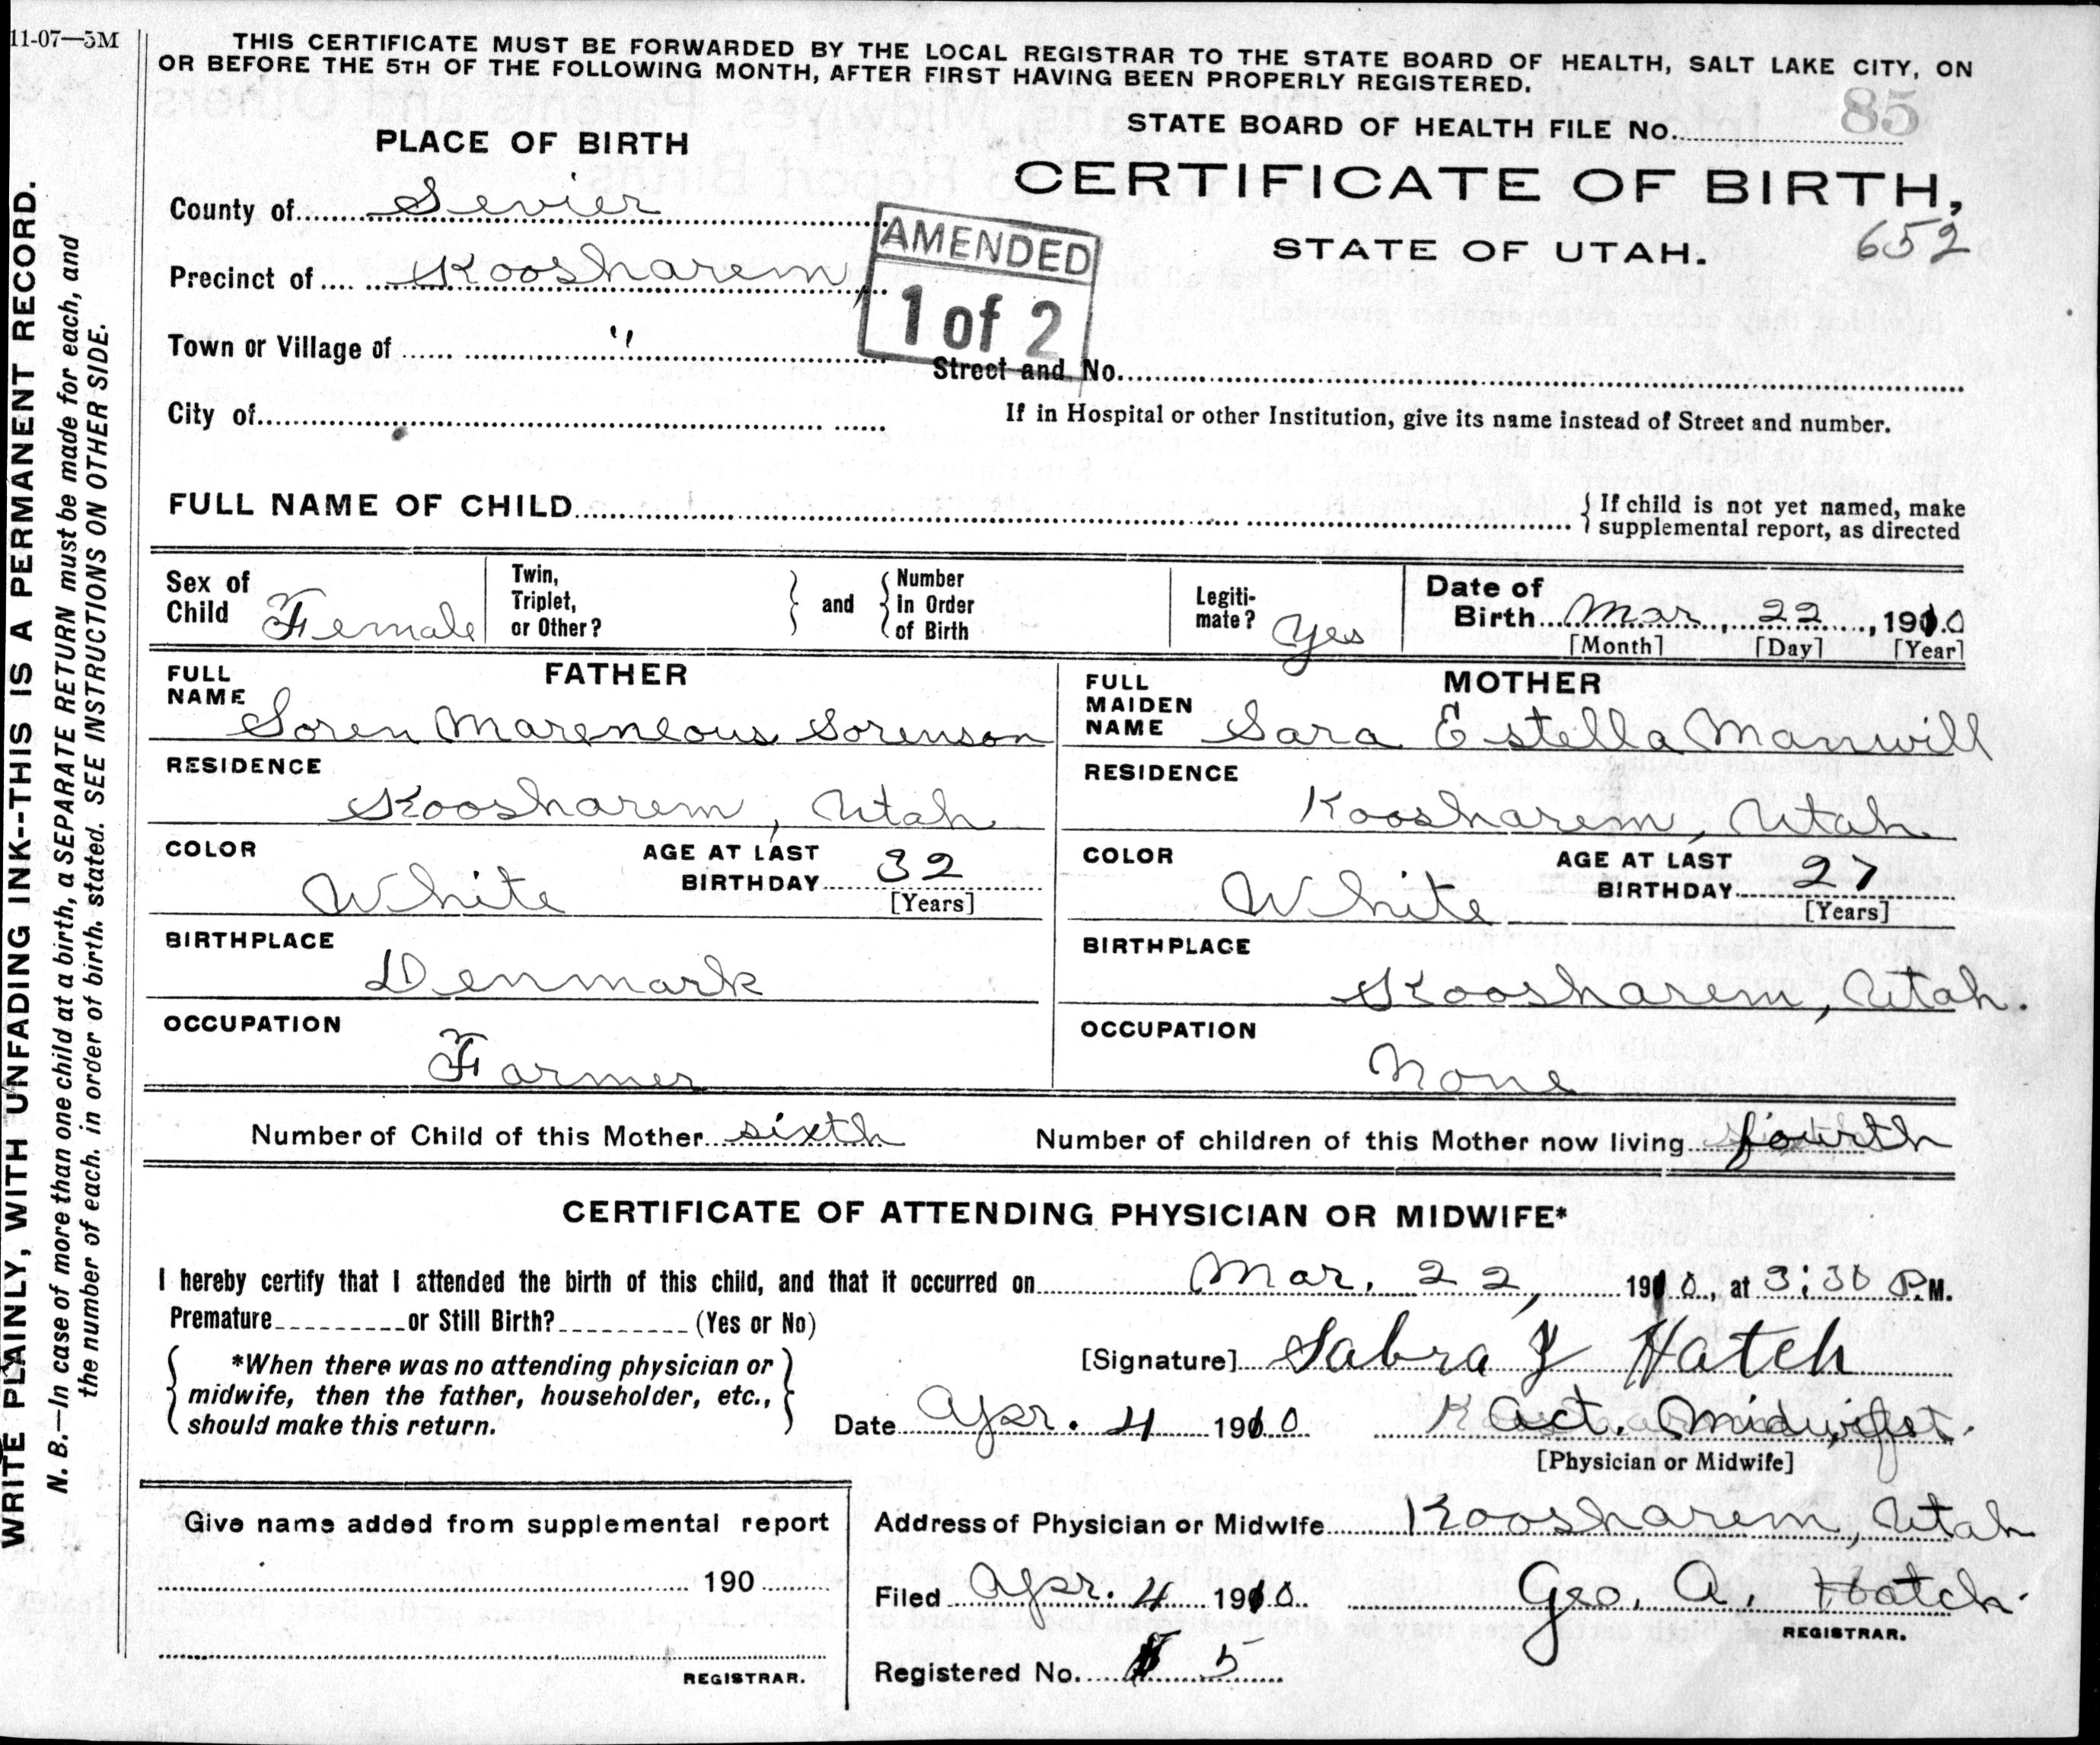 11-07—5M
THIS CERTIFICATE MUST BE FORWARDED BY THE LOCAL REGISTRAR TO THE STATE BOARD OF HEALTH, SALT LAKE CITY, ON
OR BEFORE THE 5TH OF THE FOLLOWING MONTH, AFTER FIRST HAVING BEEN PROPERLY REGISTERED.
WRITE PLAINLY, WITH UNFADING INK--THIS IS A PERMANENT RECORD.
N. B.—In case of more than one child at a birth, a SEPARATE RETURN must be made for each, and
the number of each. in order of birth. stated. SEE INSTRUCTIONS ON OTHER SIDE.
STATE BOARD OF HEALTH FILE No. 85
PLACE OF BIRTH
CERTIFICATE OF BIRTH,
STATE OF UTAH. 652
County of Sevier
Precinct of Koosharem,
Town or Village of "
AMENDED
1 of 2
Street and No.
City of
If in Hospital or other Institution, give its name instead of Street and number.
FULL NAME OF CHILD
If child is not yet named, make
supplemental report, as directed
Sex of
Child Female
Twin,
Triplet,
or Other?
and
Number
In Order
of Birth
Legiti-
mate? Yes
Date of
Birth Mar, 22, 1910
[Month] [Day] [Year]
FATHER
FULL
NAME
Soren Mareneous Sorenson
RESIDENCE
Koosharem, Utah
COLOR
White
AGE AT LAST
BIRTHDAY 32
[Years]
BIRTHPLACE
Denmark
OCCUPATION
Farmer
MOTHER
FULL
MAIDEN
NAME Sara Estella Manwill
RESIDENCE
Koosharem, Utah
COLOR
White
AGE AT LAST
BIRTHDAY 27
[Years]
BIRTHPLACE
Koosharem, Utah.
OCCUPATION
None
Number of Child of this Mother sixth
Number of children of this Mother now living fourth
CERTIFICATE OF ATTENDING PHYSICIAN OR MIDWIFE*
I hereby certify that I attended the birth of this child, and that it occurred on Mar. 22, 1910, at 3:30 P.M.
Premature or Still Birth? (Yes or No)
*When there was no attending physician or
midwife, then the father, householder, etc.,
should make this return.
[Signature] Sabra J Hatch
Date Apr. 4 1910
Act. Midwife
[Physician or Midwife]
Give name added from supplemental report
190
REGISTRAR.
Address of Physician or Midwife Koosharem, Utah
Filed Apr. 4 1910 Geo. A. Hatch.
REGISTRAR.
Registered No. 5